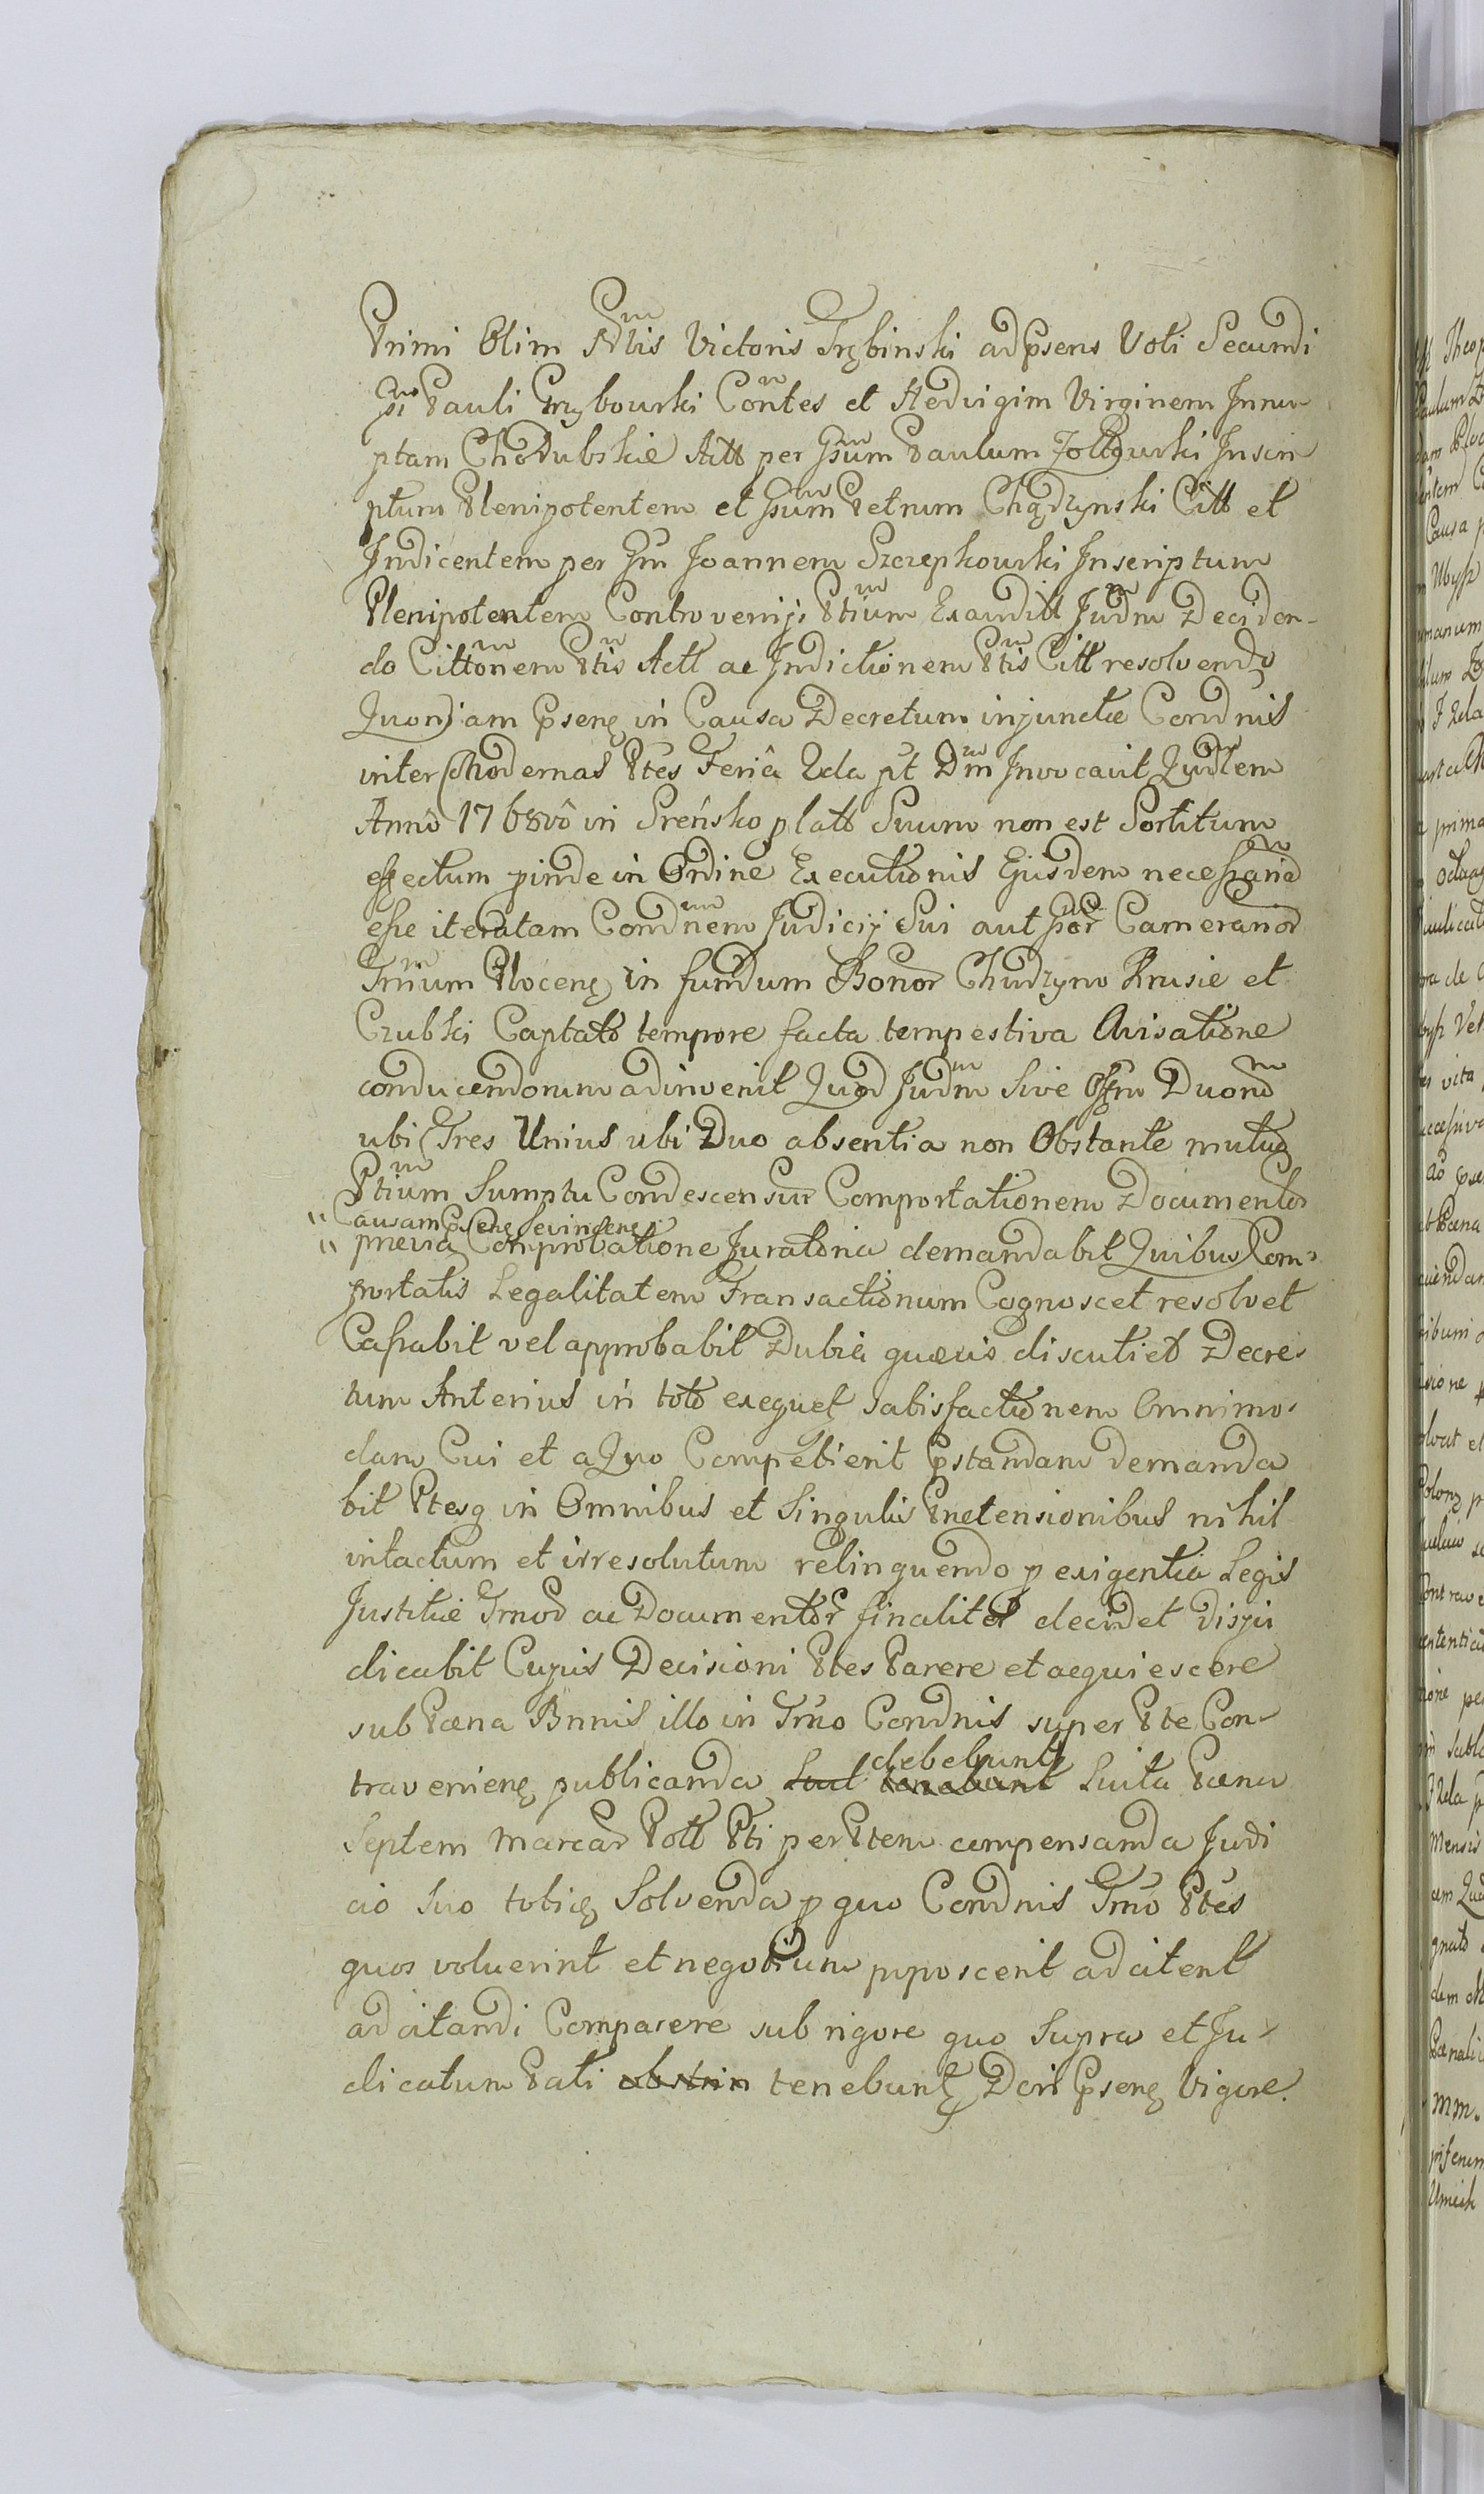 Primi Olim Ndlis Victoris Trębinski ad Psens Voti Secundi
Gsi Pauli Grzybowski Contes et Hedvigim Virginem Innu
ptam Chodubskie Actt per Gsum Paulum Zołtowski Inscri
ptum Plenipotentem et Gsum Petrum Chądzynski Citt et
Indicentem per Gm Joannem Szczepkowski Inscriptum
Plenipotentem Controversijs Ptium Exauditt Judm Deciden-
do Cittonem Ptis Actt ac Indictionem Ptis Citt resolvendo
Quoniam Psenę in Causa Decretum injunctæ Condnis
inter Modernas Ptes Feriâ 2da pt Dm Invocavit Qudlem
Annô 1768vô in Sreńsko platt Suum non est Sortitum
effectum pinde in Ordine Executionis Ejusdem necessaria
esse iteratam Condnem Judicij Sui aut Gsor Camerarior
Trmium Plocenę in fundum Bonor Chudzyno Krusie et
Czubki Captato tempore facta tempestiva Avisatione
conducendorum adinvenit Quod Judm Sive Offm Duom
ubi Tres Unius ubi Duo absentia non Obstante mutuo
Ptium Sumptu Condescensur Comportationem Documentor
" Causam Psenę Sevincenę
" prævia Comprobatione Juratoria demandabit Quibus Com-
portatis Legalitatem Transactionum Cognoscet resolvet
Cassabit vel approbabit Dubia quævis discutiet Decre-
tum Anterius in toto exequet satisfactionem Omnimo-
dam Cui et a Quo Competierit Pstandam demanda
bit Ptesq in Omnibus et Singulis Prætensionibus nihil
intactum et irresolutum relinquendo p exigentia Legis
Justitiæ Trmor ac Documentor finaliter decidet dispu
dicabit Cujus Decisioni Ptes Parere et acquiescere
sub Pæna Bnnis illo in Trmo Condnis super Pte Con-
travenienę publicanda debebunt Suita Pæna
Septem Marcar Poll Pti per Ptem compensanda Judi
cio Suo totieę Solvenda p quo Condnis Trmo Ptes
quos voluerint et negotium poposcerit adcitent
adcitandi Comparere sub rigore quo Supra et Ju-
dicatum Pati abstrin tenebunt Dcri Psenę Vigore.